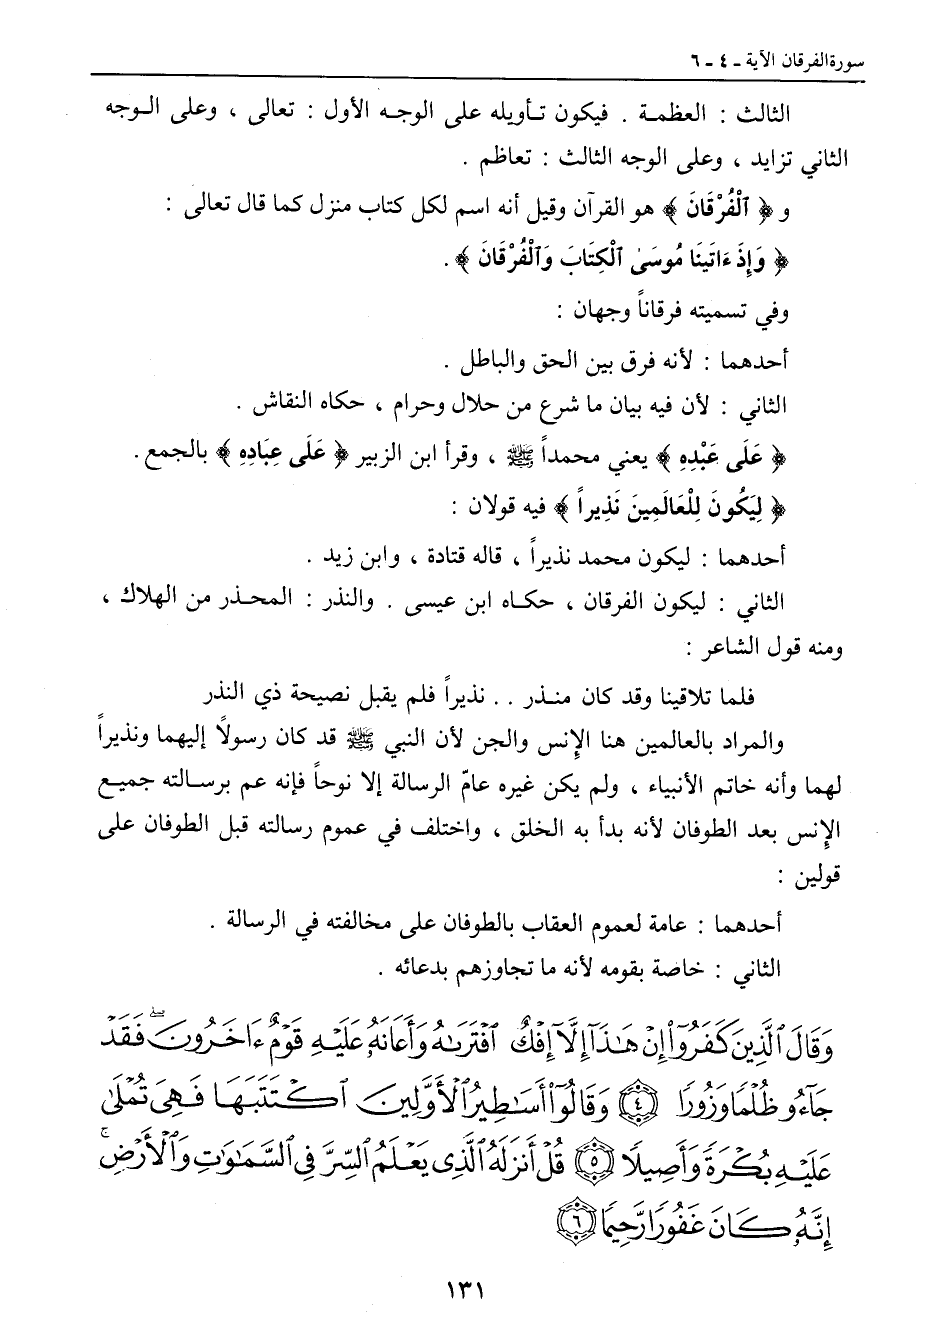 سورة الفرقان الآية ـ ٤ ـ ٦
الثالث : العظمة . فيكون تأويله على الوجه الأول : تعالى ، وعلى الوجه
الثاني تزايد ، وعلى الوجه الثالث : تعاظم .
و ﴿ ٱلْفُرْقَانَ ﴾ هو القرآن وقيل أنه اسم لكل كتاب منزل كما قال تعالى :
﴿ وَإِذَ ءَاتَينَا مُوسَىٰ ٱلْكِتَابَ وَٱلْفُرْقَانَ ﴾ .
وفي تسميته فرقاناً وجهان :
أحدهما : لأنه فرق بين الحق والباطل .
الثاني : لأن فيه بيان ما شرع من حلال وحرام ، حكاه النقاش .
﴿ عَلَى عَبْدِهِ ﴾ يعني محمداً ﷺ ، وقرأ ابن الزبير ﴿ عَلَى عِبَادِهِ ﴾ بالجمع .
﴿ لِيَكُونَ لِلْعَالَمِينَ نَذِيراً ﴾ فيه قولان :
أحدهما : ليكون محمد نذيراً ، قاله قتادة ، وابن زيد .
الثاني : ليكون الفرقان ، حكاه ابن عيسى . والنذر : المحذر من الهلاك ،
ومنه قول الشاعر :
فلما تلاقينا وقد كان منذر . . نذيراً فلم يقبل نصيحة ذي النذر
والمراد بالعالمين هنا الإنس والجن لأن النبي ﷺ قد كان رسولاً إليهما ونذيراً
لهما وأنه خاتم الأنبياء ، ولم يكن غيره عامّ الرسالة إلا نوحاً فإنه عم برسالته جميع
الإنس بعد الطوفان لأنه بدأ به الخلق ، واختلف في عموم رسالته قبل الطوفان على
قولين :
أحدهما : عامة لعموم العقاب بالطوفان على مخالفته في الرسالة .
الثاني : خاصة بقومه لأنه ما تجاوزهم بدعائه .
وَقَالَ ٱلَّذِينَ كَفَرُوٓا۟ إِنْ هَٰذَآ إِلَّآ إِفْكٌ ٱفْتَرَىٰهُ وَأَعَانَهُۥ عَلَيْهِ قَوْمٌ ءَاخَرُونَ ۖ فَقَدْ
جَآءُو ظُلْمًا وَزُورًا ﴿٤﴾ وَقَالُوٓا۟ أَسَٰطِيرُ ٱلْأَوَّلِينَ ٱكْتَتَبَهَا فَهِىَ تُمْلَىٰ
عَلَيْهِ بُكْرَةً وَأَصِيلًا ﴿٥﴾ قُلْ أَنزَلَهُ ٱلَّذِى يَعْلَمُ ٱلسِّرَّ فِى ٱلسَّمَٰوَٰتِ وَٱلْأَرْضِ ۚ
إِنَّهُۥ كَانَ غَفُورًا رَّحِيمًا ﴿٦﴾
١٣١